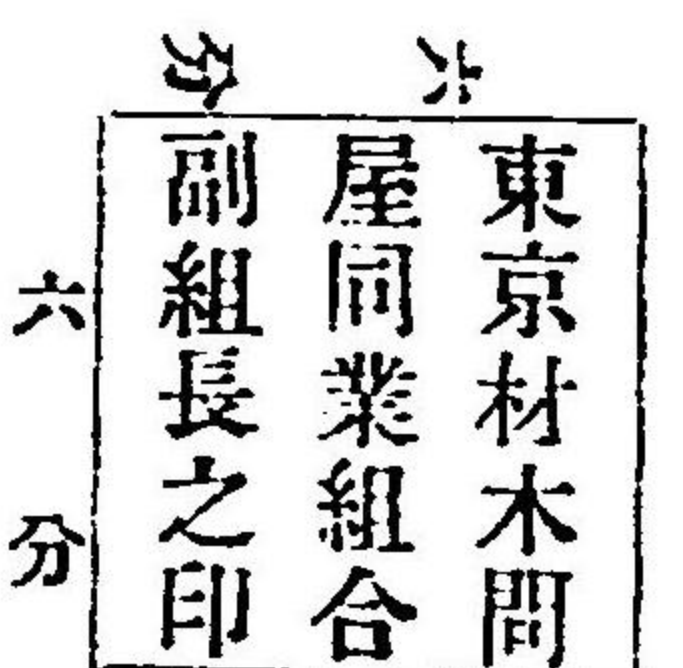 六分
東京材木問
屋同業組合
副組長之印
六分